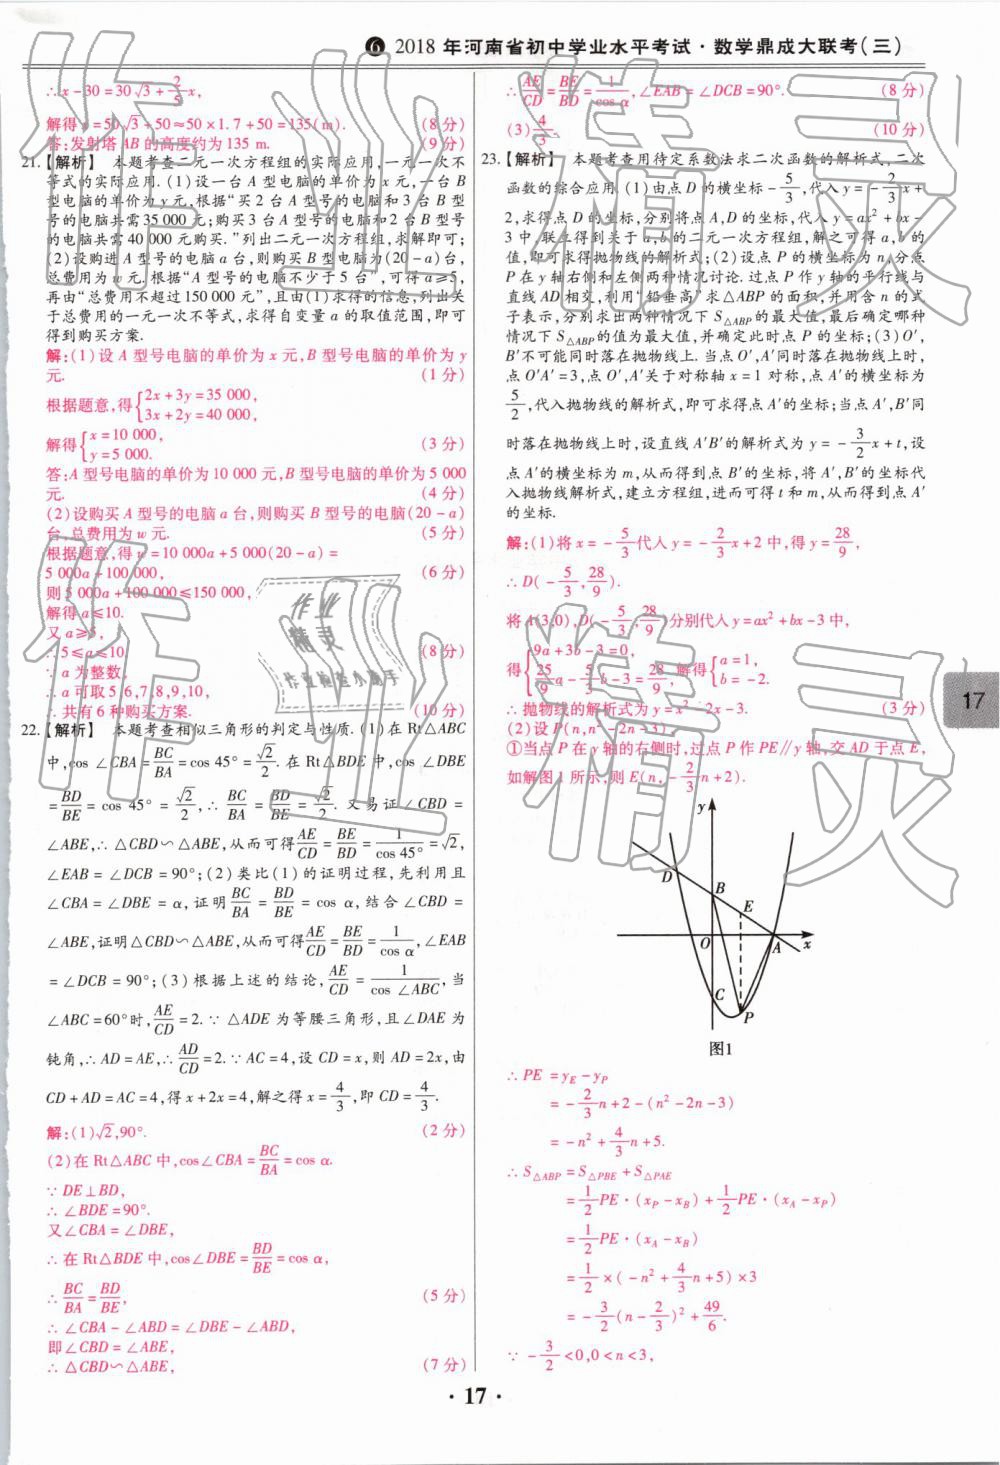 ❻ 2018 年河南省初中学业水平考试·数学鼎成大联考(三)
∴x-30=30√3+2/5x,
解得x=50√3+50≈50×1.7+50=135(m). (8分)
答:发射塔AB的高度约为135 m. (9分)
21.【解析】 本题考查二元一次方程组的实际应用,一元一次不
等式的实际应用.(1)设一台A型电脑的单价为x元,一台B
型电脑的单价为y元,根据“买2台A型号的电脑和3台B型
号的电脑共需35 000元;购买3台A型号的电脑和2台B型号
的电脑共需40 000元购买.”列出二元一次方程组,求解即可;
(2)设购进A型号的电脑a台,则购买B型电脑为(20-a)台,
总费用为w元.根据“A型号的电脑不少于5台”,可得a≥5,
再由“总费用不超过150 000元”,且由(1)求得的信息,列出关
于总费用的一元一次不等式,求得自变量a的取值范围,即可
得到购买方案.
解:(1)设A型号电脑的单价为x元,B型号电脑的单价为y
元. (1分)
根据题意,得{2x+3y=35 000, 3x+2y=40 000,
解得{x=10 000, y=5 000. (3分)
答:A型号电脑的单价为10 000元,B型号电脑的单价为5 000
元. (4分)
(2)设购买A型号的电脑a台,则购买B型号的电脑(20-a)
台,总费用为w元. (5分)
根据题意,得w=10 000a+5 000(20-a)=
5 000a+100 000, (6分)
则5 000a+100 000≤150 000,
解得a≤10.
又a≥5,
∴5≤a≤10. (8分)
∵a为整数,
∴a可取5,6,7,8,9,10,
∴共有6种购买方案. (10分)
22.【解析】 本题考查相似三角形的判定与性质.(1)在Rt△ABC
中,cos ∠CBA=BC/BA=cos 45°=√2/2. 在Rt△BDE中,cos ∠DBE
=BD/BE=cos 45°=√2/2,∴BC/BA=BD/BE=√2/2. 又易证∠CBD=
∠ABE,∴△CBD∽△ABE,从而可得AE/CD=BE/BD=1/cos 45°=√2,
∠EAB=∠DCB=90°;(2)类比(1)的证明过程,先利用且
∠CBA=∠DBE=α,证明BC/BA=BD/BE=cos α,结合∠CBD=
∠ABE,证明△CBD∽△ABE,从而可得AE/CD=BE/BD=1/cos α,∠EAB
=∠DCB=90°;(3)根据上述的结论,AE/CD=1/cos ∠ABC,当
∠ABC=60°时,AE/CD=2.∵△ADE为等腰三角形,且∠DAE为
钝角,∴AD=AE,∴AD/CD=2.∵AC=4,设CD=x,则AD=2x,由
CD+AD=AC=4,得x+2x=4,解之得x=4/3,即CD=4/3.
解:(1)√2,90°. (2分)
(2)在Rt△ABC中,cos∠CBA=BC/BA=cos α.
∵DE⊥BD,
∴∠BDE=90°.
又∠CBA=∠DBE,
∴在Rt△BDE中,cos∠DBE=BD/BE=cos α,
∴BC/BA=BD/BE, (5分)
∴∠CBA-∠ABD=∠DBE-∠ABD,
即∠CBD=∠ABE,
∴△CBD∽△ABE, (7分)
∴AE/CD=BE/BD=1/cos α,∠EAB=∠DCB=90°. (8分)
(3)4/3. (10分)
23.【解析】 本题考查用待定系数法求二次函数的解析式,二次
函数的综合应用.(1)由点D的横坐标-5/3,代入y=-2/3x+
2,求得点D的坐标,分别将点A,D的坐标,代入y=ax²+bx-
3中,联立得到关于a,b的二元一次方程组,解之可得a,b的
值,即可求得抛物线的解析式;(2)设点P的横坐标为n,分点
P在y轴右侧和左侧两种情况讨论.过点P作y轴的平行线与
直线AD相交,利用“铅垂高”求△ABP的面积,并用含n的式
子表示,分别求出两种情况下S△ABP的最大值,最后确定哪种
情况下S△ABP的值为最大值,并确定此时点P的坐标;(3)O′,
B′不可能同时落在抛物线上.当点O′,A′同时落在抛物线上时,
点O′A′=3,点O′,A′关于对称轴x=1对称,点A′的横坐标为
5/2,代入抛物线的解析式,即可求得点A′的坐标;当点A′,B′同
时落在抛物线上时,设直线A′B′的解析式为y=-3/2x+t,设
点A′的横坐标为m,从而得到点B′的坐标,将A′,B′的坐标代
入抛物线解析式,建立方程组,进而可得t和m,从而得到点A′
的坐标.
解:(1)将x=-5/3代入y=-2/3x+2中,得y=28/9,
∴D(-5/3,28/9).
将A(3,0),D(-5/3,28/9)分别代入y=ax²+bx-3中,
得{9a+3b-3=0, 25/9a-5/3b-3=28/9, 解得{a=1, b=-2.
∴抛物线的解析式为y=x²-2x-3. (3分)
(2)设P(n,n²-2n-3).
①当点P在y轴的右侧时,过点P作PE∥y轴,交AD于点E,
如解图1所示,则E(n,-2/3n+2).
y
D
B
E
O
A
x
C
P
图1
∴PE=yE-yP
=-2/3n+2-(n²-2n-3)
=-n²+4/3n+5.
∴S△ABP=S△PBE+S△PAE
=1/2PE·(xP-xB)+1/2PE·(xA-xP)
=1/2PE·(xA-xB)
=1/2×(-n²+4/3n+5)×3
=-3/2(n-2/3)²+49/6.
∵-3/2<0,0<n<3,
17
·17·
作业精灵
作业精灵
作业
精灵
作业检查小助手